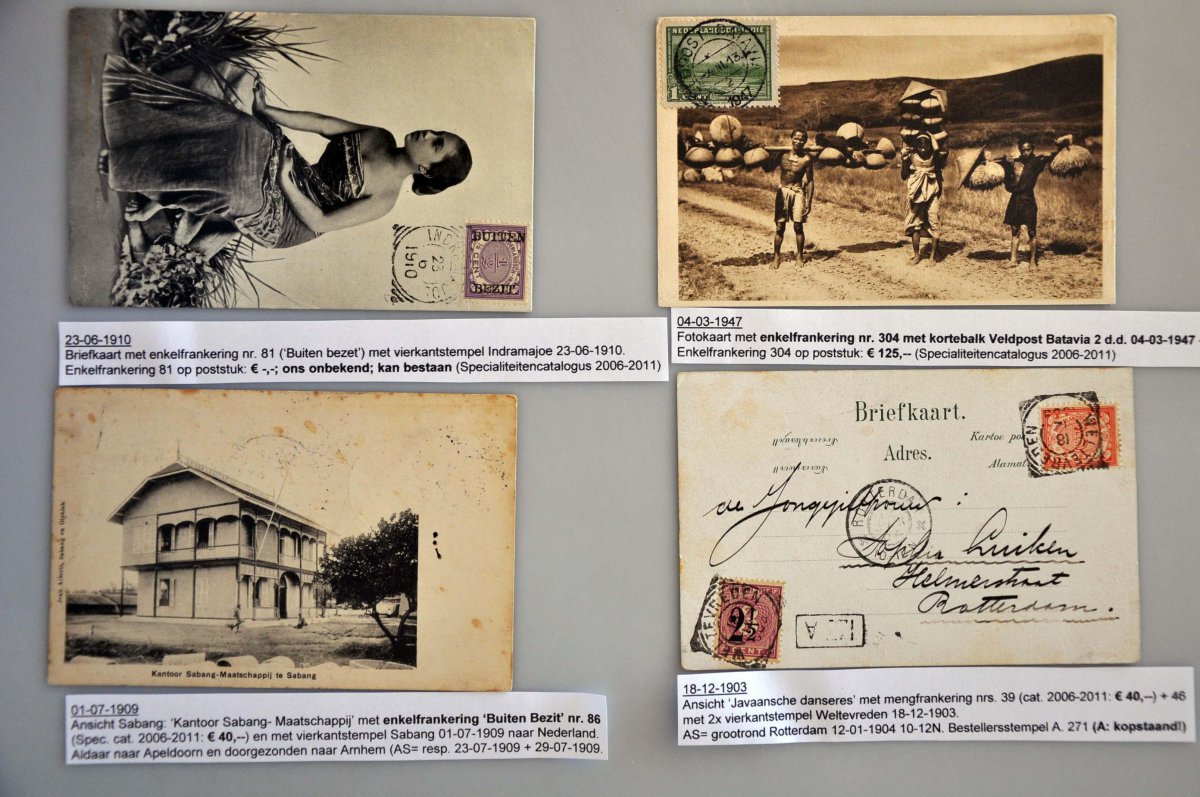 INDRAMAJOE
23
6
1910
BUITEN
BEZIT
½ CENT
23-06-1910
Briefkaart met enkelfrankering nr. 81 (‘Buiten bezet’) met vierkantstempel Indramajoe 23-06-1910.
Enkelfrankering 81 op poststuk: € -,-; ons onbekend; kan bestaan (Specialiteitencatalogus 2006-2011)
1 CENT
1947
04-03-1947
Fotokaart met enkelfrankering nr. 304 met kortebalk Veldpost Batavia 2 d.d. 04-03-1947
Enkelfrankering 304 op poststuk: € 125,-- (Specialiteitencatalogus 2006-2011)
Kantoor Sabang-Maatschappij te Sabang
01-07-1909
Ansicht Sabang: ‘Kantoor Sabang- Maatschappij’ met enkelfrankering ‘Buiten Bezit’ nr. 86
(Spec. cat. 2006-2011: € 40,--) en met vierkantstempel Sabang 01-07-1909 naar Nederland.
Aldaar naar Apeldoorn en doorgezonden naar Arnhem (AS= resp. 23-07-1909 + 29-07-1909.
Briefkaart.
Adres.
Kartoe
Alamat
WELTEVREDEN
de Jongejuffrouw :
ROTTERDAM
Sophia Luiken
Helmerstraat
Rotterdam.
2½
CENT
18-12-1903
Ansicht ‘Javaansche danseres’ met mengfrankering nrs. 39 (cat. 2006-2011: € 40,--) + 46
met 2x vierkantstempel Weltevreden 18-12-1903.
AS= grootrond Rotterdam 12-01-1904 10-12N. Bestellersstempel A. 271 (A: kopstaand!)